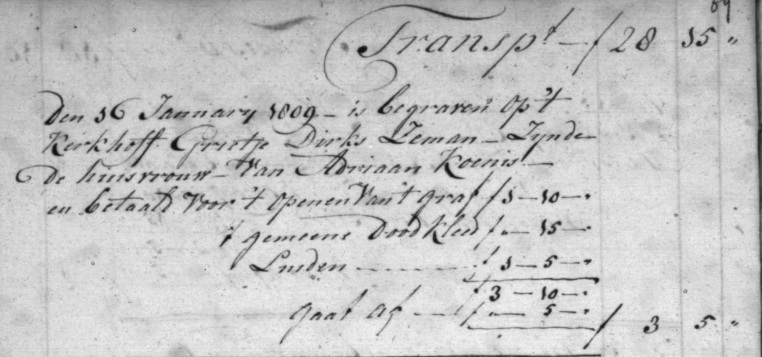 Transpt — f 28 15 "
Den 16 January 1809 – is begraven op 't
Kerkhoff Grietje Dirks Zeman – Zynde
de huisvrouw – van Adriaan Koenis –
en betaald voor 't openen van 't graf f 1 – 10 – "
't gemeene Doodkleed f " – 15 – "
Luiden – – – – f 1 – 5 – "
f 3 – 10 – "
gaat af – – f " – 5 – " f 3 5 "